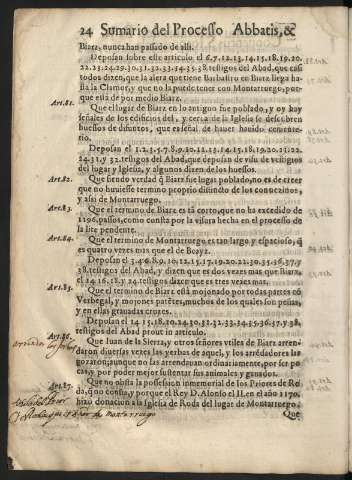 24 Sumario del Processo Abbatis, &
Biarz, nunca han passado de alli.
Deposan sobre este articulo el 6.7.12.13.14.15.18.19.20.
22.23.24.29.30.31.32.33.34.35.38. testigos del Abad, que casi
todos dizen, que la alera que tiene Barbastro en Biarz llega ha-
sta la Clamor, y que no la puede tener con Montarruego, por-
que està de por medio Biarz.
Art.81. Que el lugar de Biarz en lo antiguo fue poblado, y oy hay
señales de los edificios del, y cerca de la Iglesia se descubren
huessos de difuntos, que es señal de hauer hauido cemente-
rio.
Deposan el 1.2.3.5.7.8.9.10.11.12.14.15.18.19.20.21.22.
24.31. y 32. testigos del Abad, que deposan de visu de vestigios
del lugar y Iglesia, y algunos dizen de los huessos.
Art.82. Que siendo verdad q̃ Biarz fue lugar poblado, no es de creer
que no huuiesse termino proprio distincto de los conuezinos,
y assi de Montarruego.
Art.83. Que el termino de Biarz es tã corto, que no ha excedido de
1196. passos, como consta por la visura hecha en el processo de
la lite pendente.
Art.84. Que el termino de Montarruego es tan largo y espacioso, q̃
es quatro vezes mas que el de Biarz.
Deposan el 3.4.6.8.9.10.12.15.17.19.20.22.30.35.36.37. y
38. testigos del Abad, y dizen que es dos vezes mas que Biarz,
el 14.16.18. y 24. testigos dizen que es tres vezes mas.
Art.85. Que el termino de Biarz està mojonado por todas partes cõ
Verbegal, y mojones patẽtes, muchos de los quales son peñas,
y en ellas grauadas cruzes.
Deposan el 14.15.18.20.24.30.31.32.33.34.35.36.37. y 38.
testigos del Abad prout in articulo.
Art.86. Que Iuan de la Sierra, y otros señores vtiles de Biarz arren-
daron diuersas vezes las yerbas de aquel, y los arrẽdadores las
gozaron; aunque no las arrendauan ordinariamente, por ser po
cas, y por poder mejor sustentar sus animales y ganados.
Art.87. Que no obsta la possession inmemorial de los Priores de Ro
da, q̃ no consta, y porque el Rey D. Alonso el II. en el año 1170.
hizo donacion a la Iglesia de Roda del lugar de Montarruego.
Que